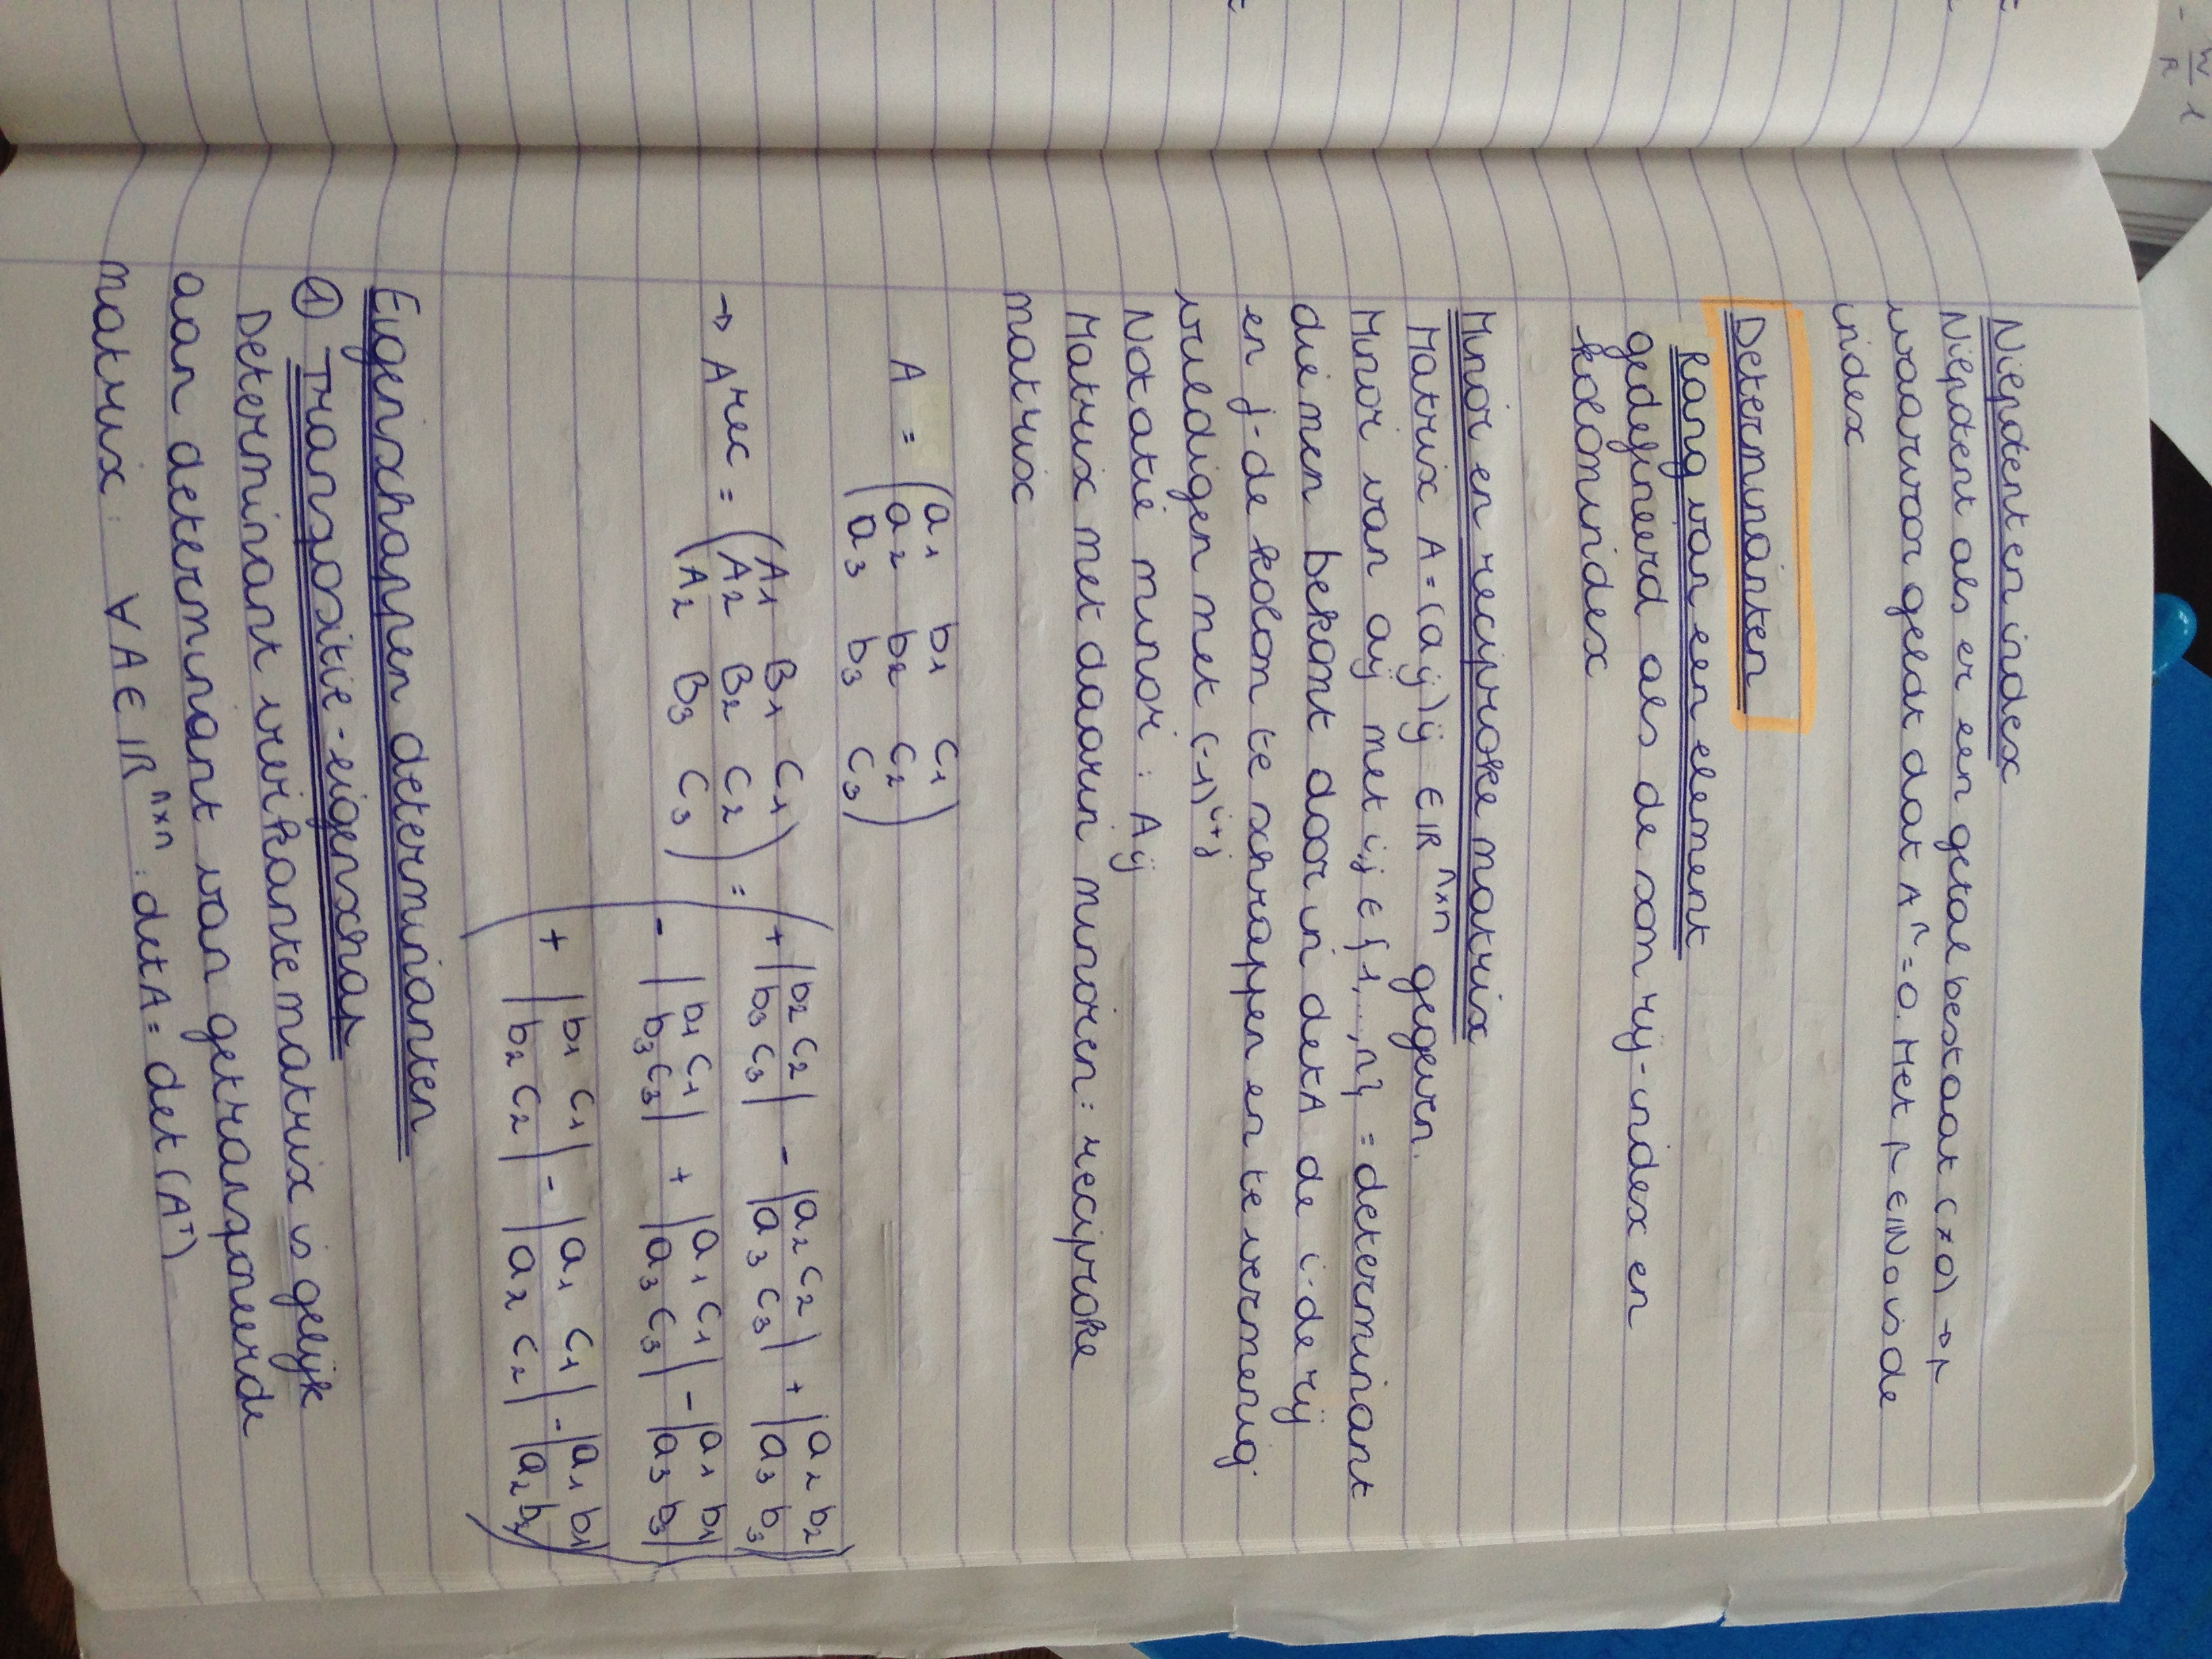 Nilpotent en index
Nilpotent als er een getal bestaat (≠0) → p
waarvoor geldt dat Aᵖ = 0. Het p ∈ ℕ₀ is de
index
Determinanten
Rang van een element
gedefineerd als de som rij-index en
kolomindex
Minor en reciproke matrix
Matrix A = (aij)ij ∈ ℝⁿˣⁿ gegeven.
Minor van aij met i,j ∈ {1,...,n} = determinant
die men bekomt door in detA de i-de rij
en j-de kolom te schrappen en te vermenig
vuldigen met (-1)ⁱ⁺ʲ
Notatie minor : Aij
Matrix met daarin minoren: reciproke
matrix
A = (a₁ b₁ c₁)
a₂ b₂ c₂
(a₃ b₃ c₃)
→ Aʳᵉᶜ = (A₁ B₁ C₁) = (+ |b₂ c₂| - |a₂ c₂| + |a₂ b₂|
(A₂ B₂ C₂) |b₃ c₃| |a₃ c₃| |a₃ b₃|
(A₂ B₃ C₃) - |b₁ c₁| + |a₁ c₁| - |a₁ b₁|
|b₃ c₃| |a₃ c₃| |a₃ b₃|
+ |b₁ c₁| - |a₁ c₁| - |a₁ b₁|
|b₂ c₂| |a₂ c₂| |a₂ b₂|)
Eigenschappen determinanten
① Transpositie-eigenschap
Determinant vierkante matrix is gelijk
aan determinant van getransponeerde
matrix : ∀ A ∈ ℝⁿˣⁿ : detA = det(Aᵀ)